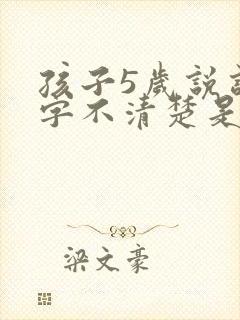 孩子5歲說
字不清楚是
梁文豪